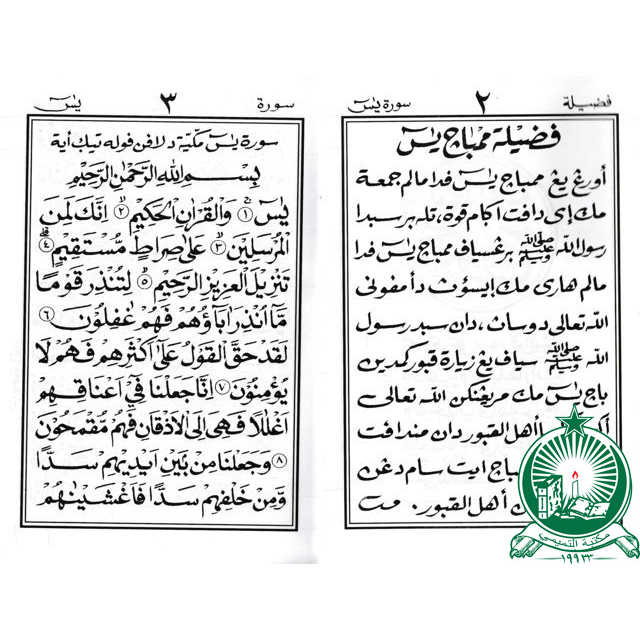 فضيلة ٢ سورة يٰسٓ
فضيلة ممباچ يٰسٓ
أورڠ يڠ ممباچ يٰسٓ ڤدا مالم جمعة
مك اي داڤت اكام قوة، تله برسبدا
رسول الله ﷺ برڠسياڤ ممباچ يٰسٓ ڤدا
مالم هاري مك ايسؤث دأمڤوني
الله تعالى دوساث، دان سبد رسول
الله ﷺ سياڤ يڠ زيارة قبور كمدين
باچ يٰسٓ مك مريڠنكن الله تعالى
أهل القبور دان منداڤت
مباچ ايت سام دڠن
أهل القبور. مت
سورة ٣ يٰسٓ
سورة يٰسٓ مكية دلاڤن ڤوله تيݢ أية
بِسْمِ اللهِ الرَّحْمٰنِ الرَّحِيْمِ
يٰسٓ ﴿١﴾ وَالْقُرْاٰنِ الْحَكِيْمِ ﴿٢﴾ اِنَّكَ لَمِنَ
الْمُرْسَلِيْنَ ﴿٣﴾ عَلٰى صِرَاطٍ مُّسْتَقِيْمٍ ﴿٤﴾
تَنْزِيْلَ الْعَزِيْزِ الرَّحِيْمِ ﴿٥﴾ لِتُنْذِرَ قَوْمًا
مَّآ اُنْذِرَ اٰبَآؤُهُمْ فَهُمْ غٰفِلُوْنَ ﴿٦﴾
لَقَدْ حَقَّ الْقَوْلُ عَلٰٓى اَكْثَرِهِمْ فَهُمْ لَا
يُؤْمِنُوْنَ ﴿٧﴾ اِنَّا جَعَلْنَا فِيْٓ اَعْنَاقِهِمْ
اَغْلٰلًا فَهِيَ اِلَى الْاَذْقَانِ فَهُمْ مُّقْمَحُوْنَ
﴿٨﴾ وَجَعَلْنَا مِنْۢ بَيْنِ اَيْدِيْهِمْ سَدًّا
وَّمِنْ خَلْفِهِمْ سَدًّا فَاَغْشَيْنٰهُمْ
مكتبة
١٩٩٣٣